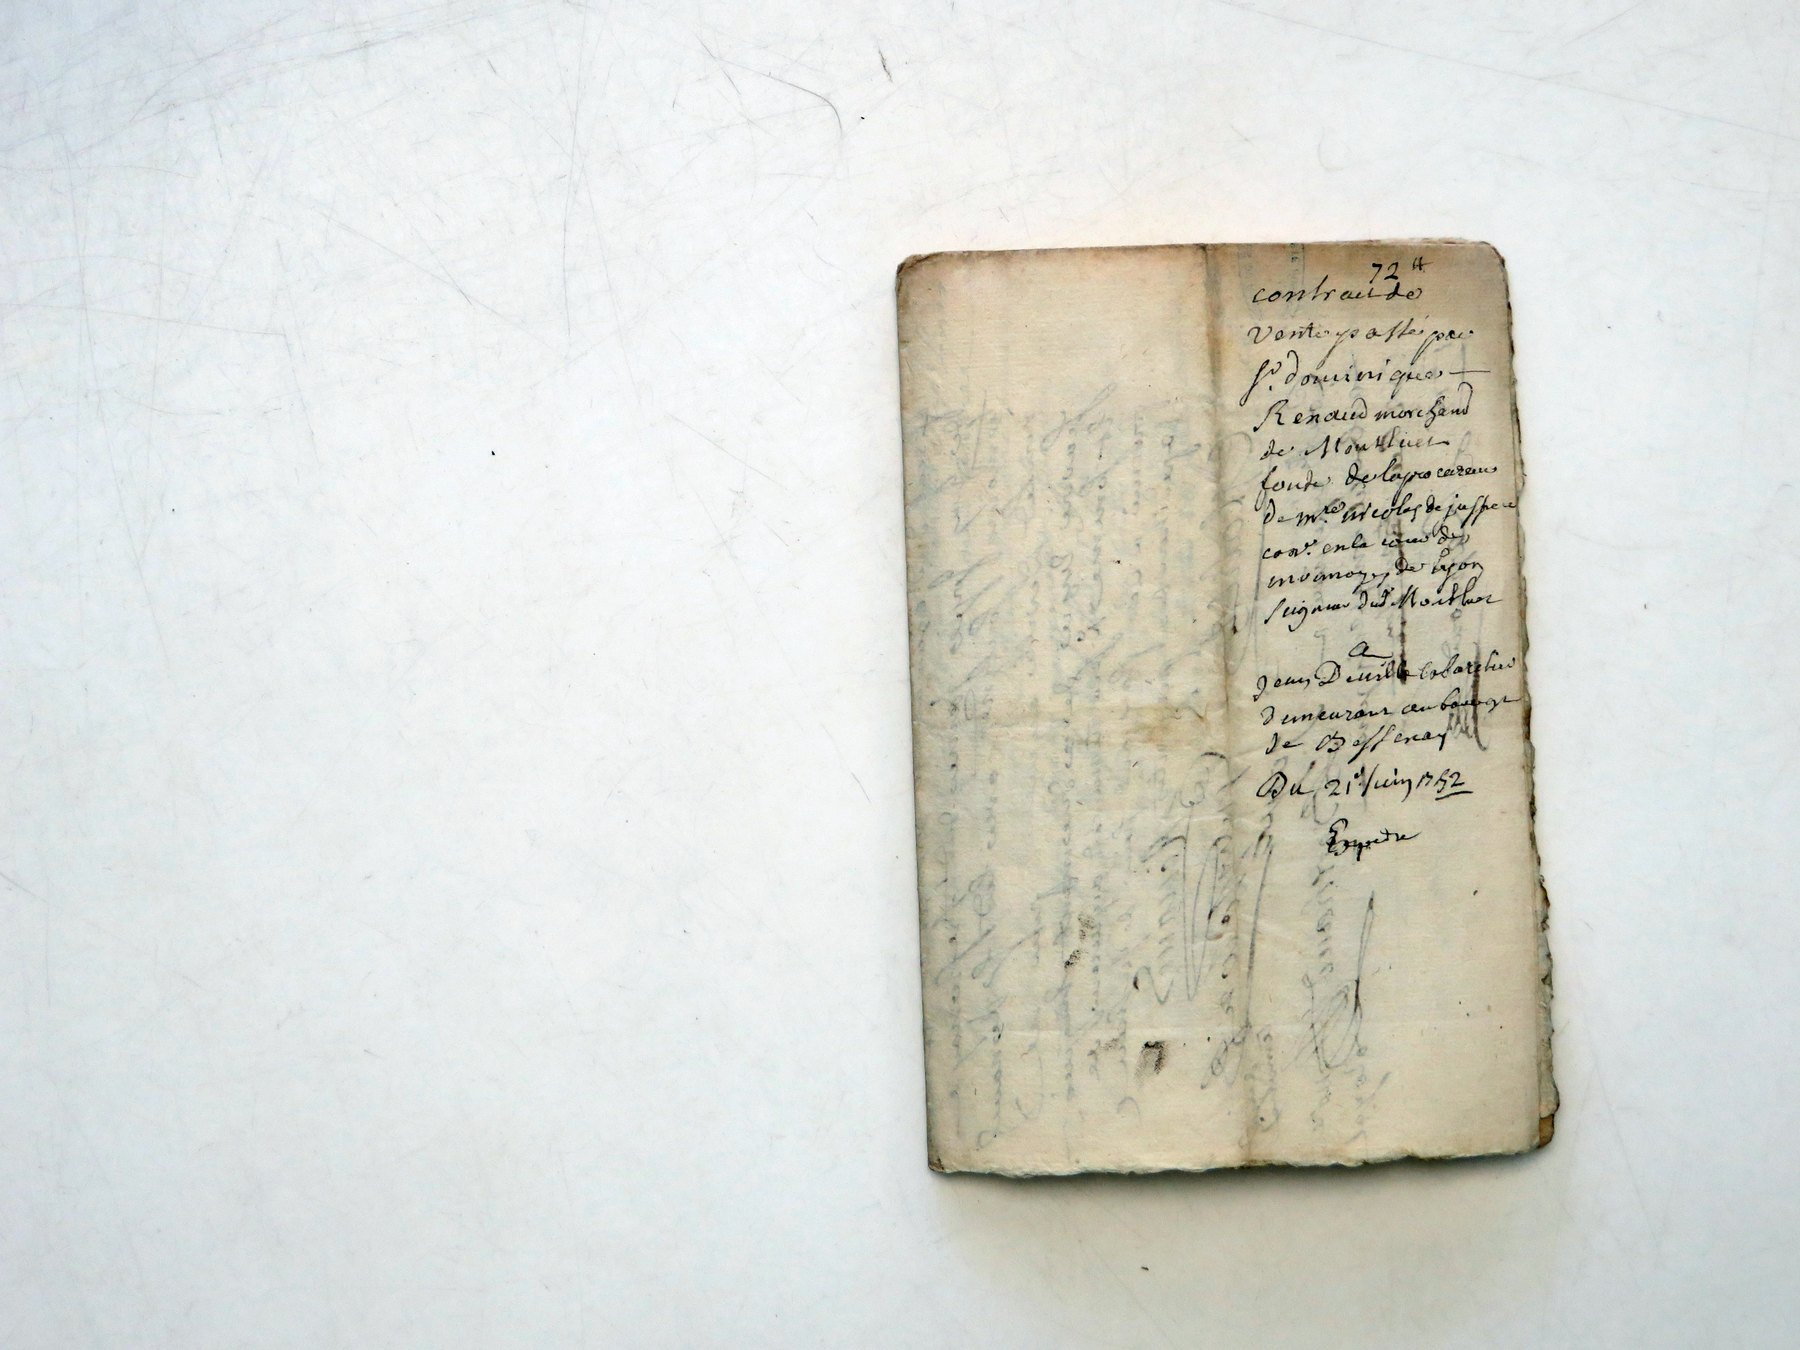 72 ₶
contract de
Vente passé par
Sr. dominique
Renaud marchand
de Montluet
fondé de la procuraon
de mre. nicolas de jussieu
conr. en la cour des
monnoyes de lyon
seigneur dudt Montluet
a
jean Deville cabaretier
demeurant au bourg
de Bessenay
Du 21e. juin 1752
Expedie